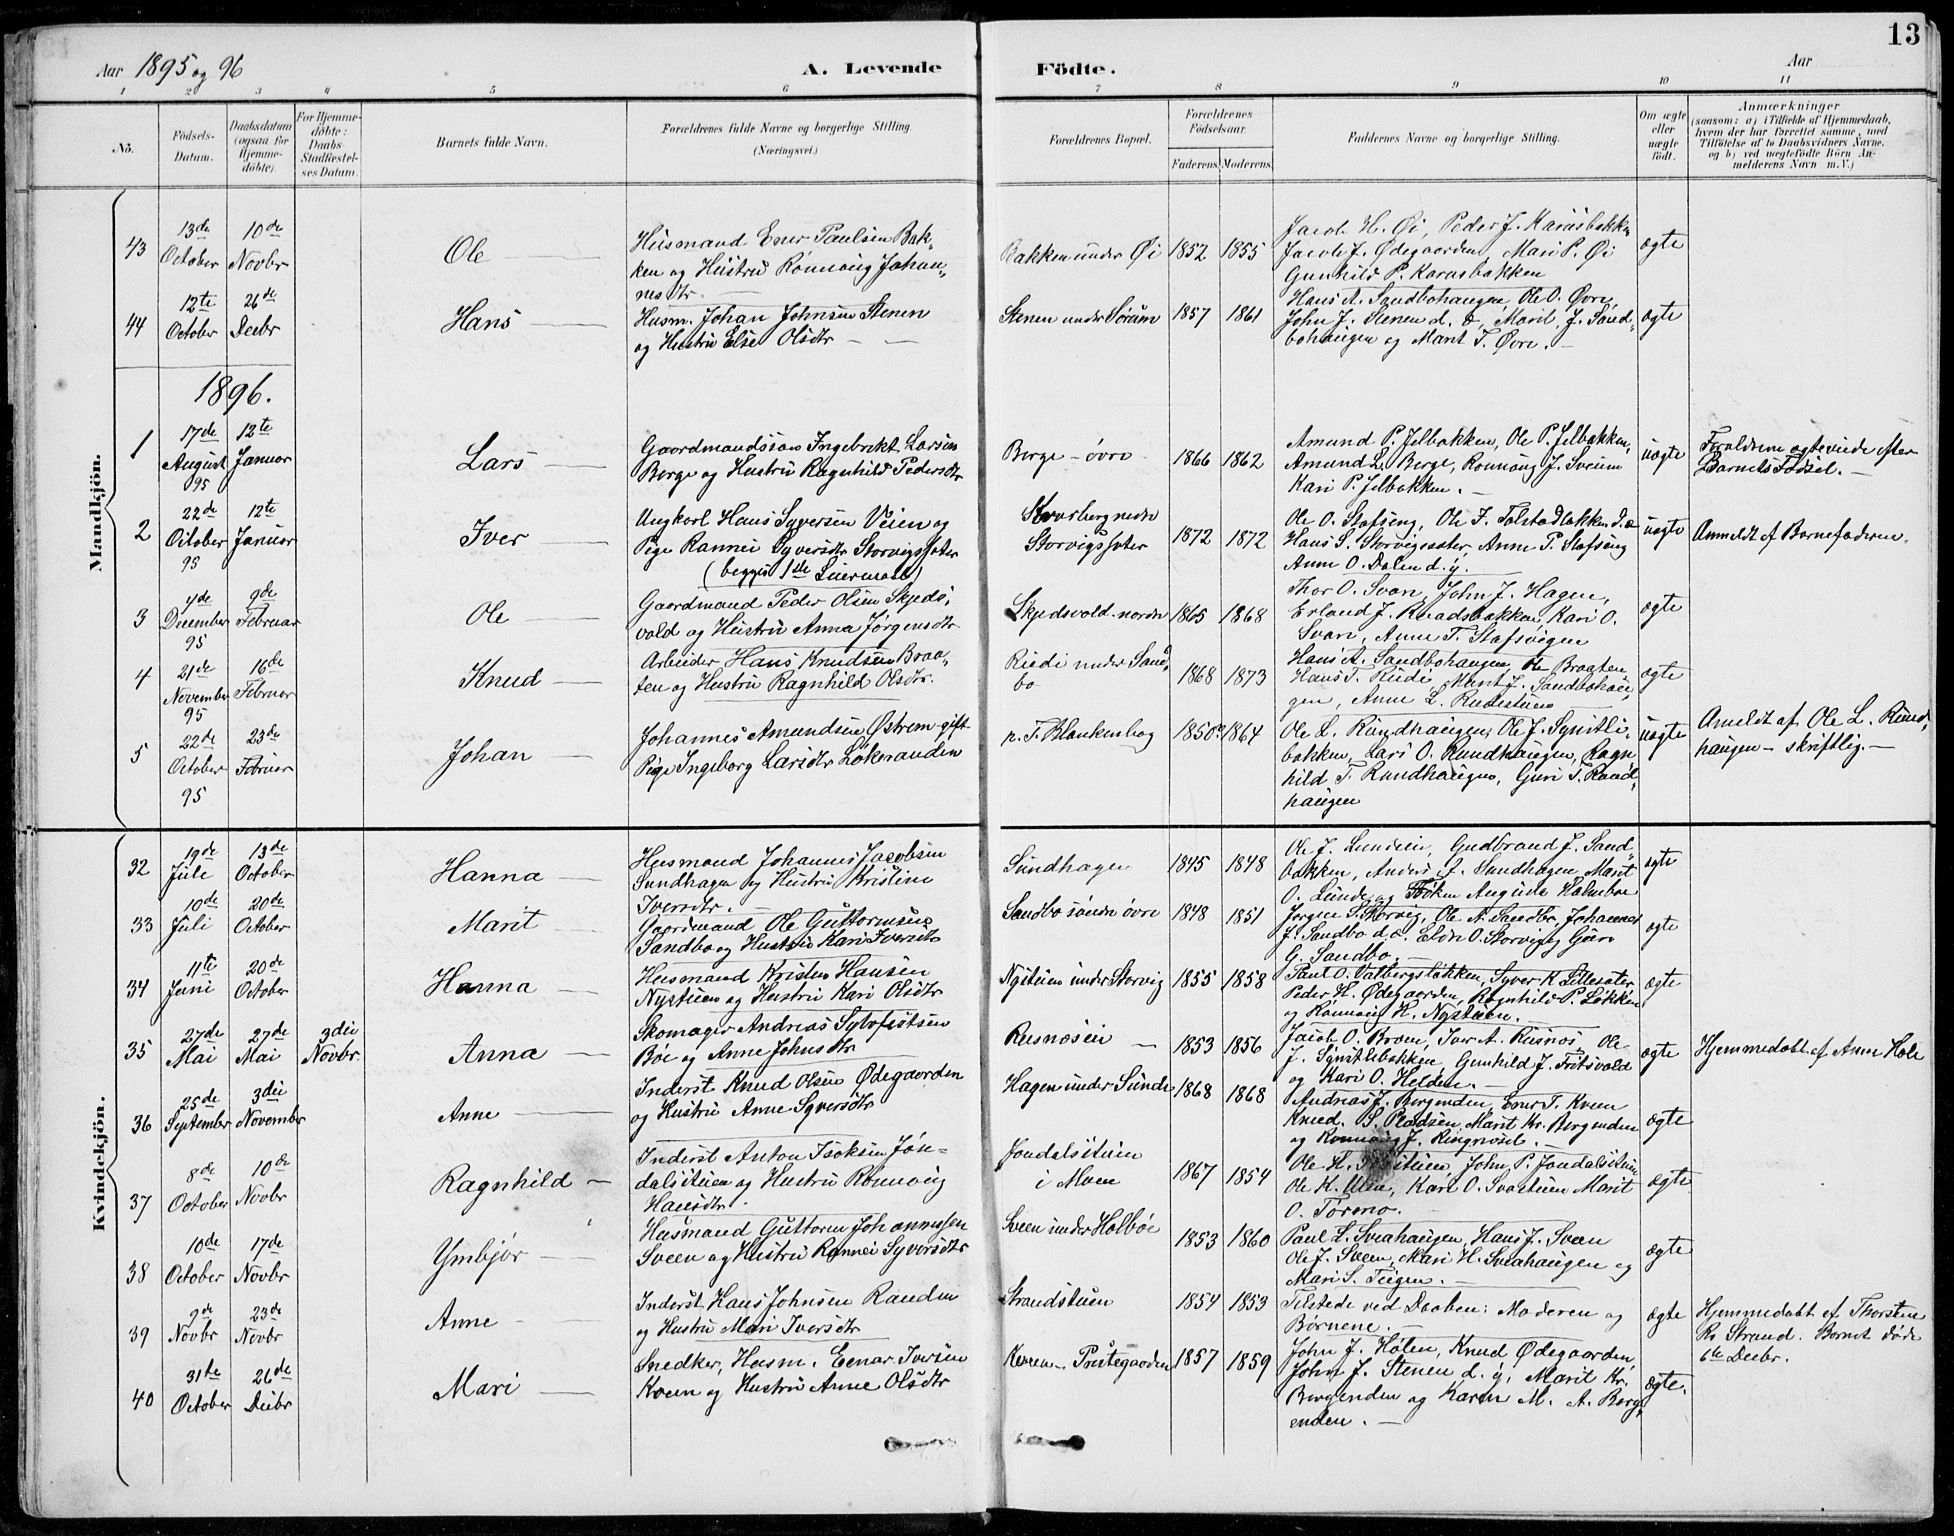 13
Aar 1895 og 96
A. Levende Födte.
Aar
1 2 3 4 5 6 7 8 9 10 11
No.
Födsels-Datum.
Daabsdatum (ogsaa for Hjemme-döbte).
For Hjemme-döbte: Daabs-Stadfæstel-ses Datum.
Barnets fulde Navn.
Forældrenes fulde Navne og borgerlige Stilling. (Næringsvei.)
Forældrenes Bopæl.
Forældrenes Födselsaar.
Faderens. Moderens.
Faddernes Navne og borgerlige Stilling.
Om ægte eller uægte födt.
Anmærkninger
(saasom: a) i Tilfælde af Hjemmedaab,
hvem der har forrettet samme, med
Tilföielse af to Daabsvidners Navne.
og b) ved uægtefödte Börn An-
melderens Navn m. V.)
Mandkjön.
43 13de October 10de Novbr Ole
Husmand Ener Paulsen Bak-
ken og Hustru Rønnaug Johan-
nesdtr.
Bakken under Øi 1852 1855
Jacob H. Øi, Peder J. Karusbakken
Jacob J. Ødegaarden, Mari P. Øi
Gunhild P. Karusbakken
ægte
44 12te October 26de Decbr Hans
Husm. Johan Johnsen Stenen
og Hustru Else Olsdtr
Stenen under Sørum 1857 1861
Hans A. Sandbohaugen, Ole O. Øvre,
John J. Stenen d. æ, Marit J. Sand-
bohaugen og Marit T. Øvre.
ægte
1896.
1 17de August 95 12te Januar Lars
Gaardmandssøn Ingebrekt Larsen
Berge og Hustru Ragnhild Pedersdtr
Berge - øvre 1866 1862
Amund P. Jelbakken, Ole P. Jelbakken,
Amund L. Berge, Rønnaug J. Sveum
Kari P. Jelbakken.
uægte
Forældrene ægteviede efter
Barnets Fødsel.
2 22de October 95 12te Januar Iver
Ungkarl Hans Syversen Veien og
Pige Rannei Syversdtr Storvigssæter
(begges 1ste Leiermaal)
Storvigssæter 1872 1872
Ole O. Stafseng, Ole J. Tolstadløkken d. æ
Hans S. Storvigssæter, Anne P. Stafseng
Anne O. Dalen d. y.
uægte
Anmeldt af Barnefaderen.
3 4de December 95 9de Februar Ole
Gaardmand Peder Olsen Skjeds-
vold og Hustru Anna Jørgensdtr
Skjedsvold nordre 1865 1868
Thor O. Svare, John J. Hagen,
Erland J. Kvadsbakken, Kari O.
Svare, Anne T. Stafsvigen
ægte
4 21de November 95 16de Februar Knud
Arbeider Hans Knudsen Braa-
ten og Hustru Ragnhild Olsdtr.
Rudi under Sand-
bo 1868 1873
Hans A. Sandbohaugen, Ole Braaten
Hans T. Rudi, Marit J. Sandbohau-
gen, Anne L. Rudistuen
ægte
5 22de October 95 23de Februar Johan
Johannes Amundsen Østrem - gift
Pige Ingeborg Larsdtr Løkeranden
p. T. Blankenborg 1850 1864
Ole L. Rundhaugen, Ole J. Synstli-
bakken, Lars O. Rundhaugen, Ragn-
hild T. Rundhaugen, Guri T. Rund-
haugen
uægte
Anmeldt af Ole L. Rund-
haugen - skriftlig.
Kvindekjön.
32 19de Juli 13de October Hanna
Husmand Johannes Jacobsen
Sundhagen og Hustru Kristine
Iversdtr.
Sundhagen 1845 1848
Ole J. Lundein, Gudbrand J. Sand-
bakken, Anders J. Sundhagen, Marit
O. Lunde og Frøken Augusta Halmboe
ægte
33 10de Juli 20de October Marit
Gaardmand Ole Guttormsen
Sandbo og Hustru Kari Iversdtr
Sandbo søndre øvre 1848 1851
Jørgen S. Storvig, Ole A. Sandbo, Johannes
J. Sandbo d. æ. Eldri O. Storvig og Guri
G. Sandbo.
ægte
34 11te Juni 20de October Hanna
Husmand Kristen Hansen
Nystuen og Hustru Kari Olsdtr
Nystuen under Storvig 1855 1858
Paul O. Valbergsløkken, Syver K. Lillesæter
Peder H. Ødegaarden, Ragnhild P. Løkken
og Rønnaug H. Nystuen.
ægte
35 27de Mai 27de Mai 3die Novbr Anna
Skomager Andreas Sylfestsen
Bøe og Anne Johnsdtr
Rusnæsein 1853 1856
Jacob O. Broen, Iver A. Rusnæs, Ole
J. Synstlibakken, Gunhild J. Fritsvold
og Kari O. Helden.
ægte
Hjemmedøbt af Anne Hole
36 25de September 3die November Anne
Inderst Knud Olsen Ødegaarden
og Hustru Anne Syversdtr
Hagen under Sunde 1868 1868
Andreas J. Bergenden, Ener T. Kveen
Knud S. Pladsen, Marit Kr. Bergenden
og Rønnaug J. Ringnæs.
ægte
37 8de October 10de Novbr Ragnhild
Inderst Anton Isaksen Jøn-
dalsstuen og Hustru Rønnaug
Hansdtr.
Jondalsstuen
i Moen 1867 1854
John P. Jondalsstuen
Ole K. Moen, Kari O. Svastuen Marit
O. Tormo.
ægte
38 10de October 17de Novbr Ymbjør
Husmand Guttorm Johannesen
Sveen og Hustru Rannei Syversdtr
Sveen under Holbøe 1853 1860
Paul L. Sveahaugen, Hans J. Sveen
Ole J. Sveen, Mari H. Sveahaugen og
Mari S. Teigen.
ægte
39 9de Novbr 23de Novbr Anne
Inderst Hans Johnsen Randen
og Hustru Mari Iversdtr
Strandstuen 1854 1853
Tilstede ved Daaben: Moderen og
Børnene.
ægte
Hjemmedøbt af Thorsten
Rs. Strand. Barnet døde
6te Decbr.
40 31te October 26de Decbr Mari
Snedker, Husm. Eenar Iversen
Kveen og Hustru Anne Olsdtr
Kveen - Præstegaarden 1857 1859
John J. Holen, Knud Ødegaarden,
John J. Stenen d. y, Marit Kr.
Bergenden og Karen M. A. Berg-
enden.
ægte.